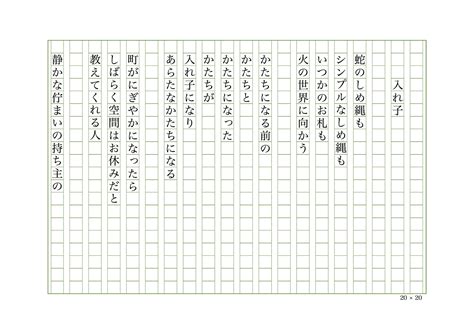 入れ子
蛇のしめ縄も
シンプルなしめ縄も
いつかのお札も
火の世界に向かう
かたちになる前の
かたちと
かたちになった
かたちが
入れ子になり
あらたなかたちになる
町がにぎやかになったら
しばらく空間はお休みだと
教えてくれる人
静かな佇まいの持ち主の
20 × 20